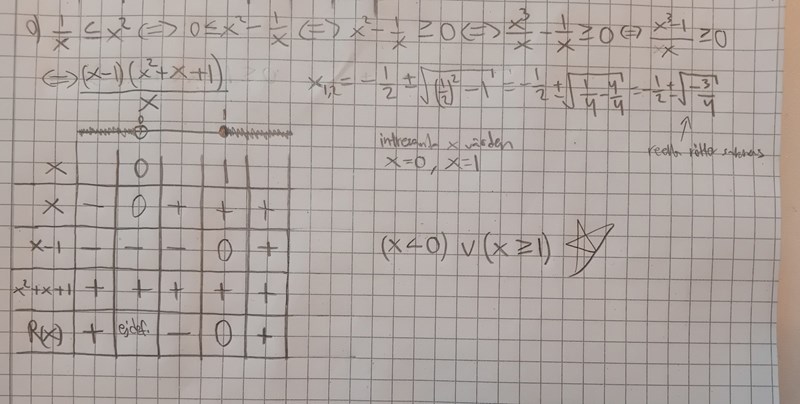 a) 1/x ≤ x² ⟺ 0 ≤ x² - 1/x ⟺ x² - 1/x ≥ 0 ⟺ x³/x - 1/x ≥ 0 ⟺ (x³-1)/x ≥ 0
⟺ (x-1)(x²+x+1)/x
x₁,₂ = -1/2 ± √((1/2)² - 1) = -1/2 ± √(1/4 - 4/4) = -1/2 ± √(-3/4)
reella rötter saknas
intressanta x värden
x=0, x=1
0 1
x 0 1
x - 0 + + +
x-1 - - - 0 +
x²+x+1 + + + + +
R(x) + ej def. - 0 +
(x<0) ∨ (x≥1)